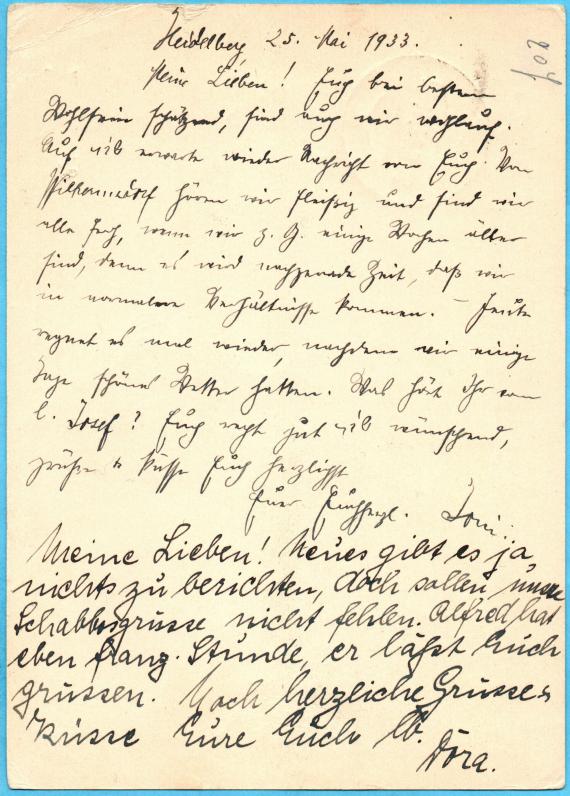 Heidelberg, 25. Mai 1933.
Meine Lieben! Euch bei bestem
Wohlsein schätzend, sind auch wir wohlauf.
Auch ich erwarte wieder Nachricht von Euch. Von
Wilhermsdorf hören wir fleißig und sind wir
alle froh, wenn wir z. G. einige Wochen älter
sind, denn es wird nachgerade Zeit, daß wir
in normalere Verhältnisse kommen. – Heute
regnet es mal wieder, nachdem wir einige
Tage schönes Wetter hatten. Was hört Ihr vom
l. Josef? Euch recht gut wünschend,
grüße & küsse Euch herzlichst
Euer Euchherzl.
Meine Lieben! Neues gibt es ja
nichts zu berichten, doch sollen unsere
Schabbosgrüsse nicht fehlen. Alfred hat
eben franz. Stunde, er läßt Euch
grüssen. Noch herzliche Grüsse &
Küsse Eure Euch lb.
Dora.
207